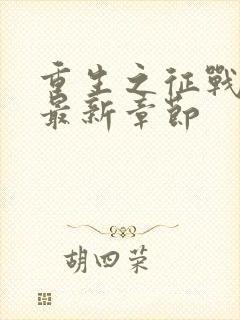 重生之征戰
最新章節
胡四荣